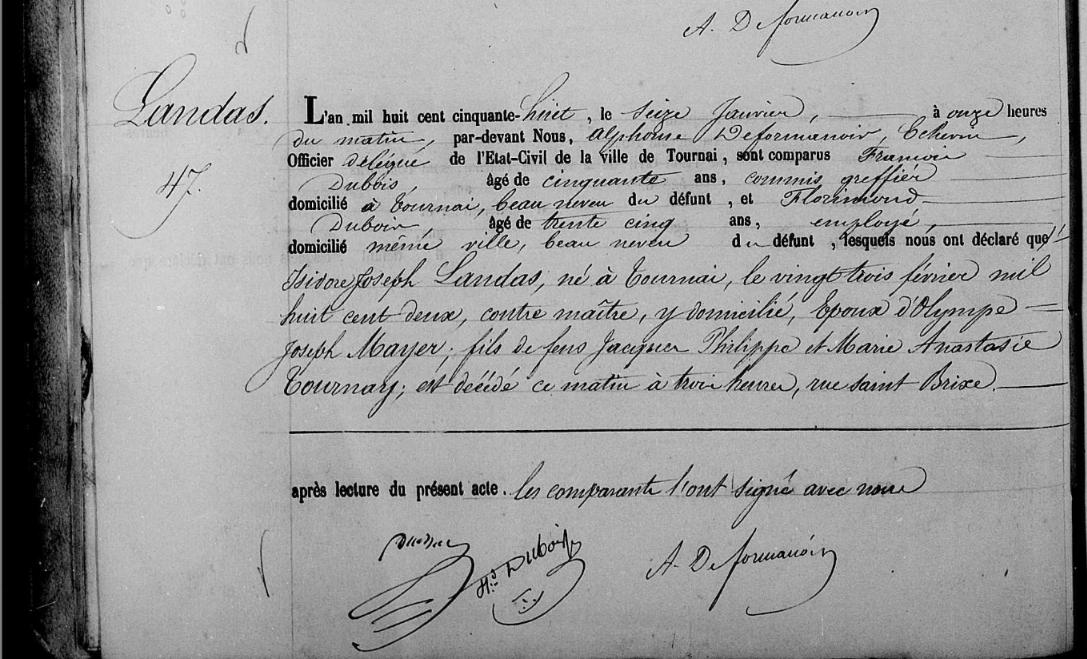 A. Deformanoir
Landas.
47.
L'an mil huit cent cinquante-huit, le seize Janvier, à onze heures
du matin, par-devant Nous, Alphonse Deformanoir, Echevin,
Officier délégué de l'Etat-Civil de la ville de Tournai, sont comparus François
Dubois, âgé de cinquante ans, commis greffier
domicilié à Tournai, beau neveu du défunt, et Florimond
Dubois, âgé de trente cinq ans, employé,
domicilié même ville, beau neveu du défunt, lesquels nous ont déclaré que
Isidore Joseph Landas, né à Tournai, le vingt trois février mil
huit cent deux, contre maître, y domicilié, Epoux d'Olympe
Joseph Mayer; fils de feus Jacques Philippe et Marie Anastasie
Tournay; est décédé ce matin à trois heures, rue saint Brixe.
après lecture du présent acte. les comparants l'ont signé avec nous
Dubois
Fd Dubois
A. Deformanoir